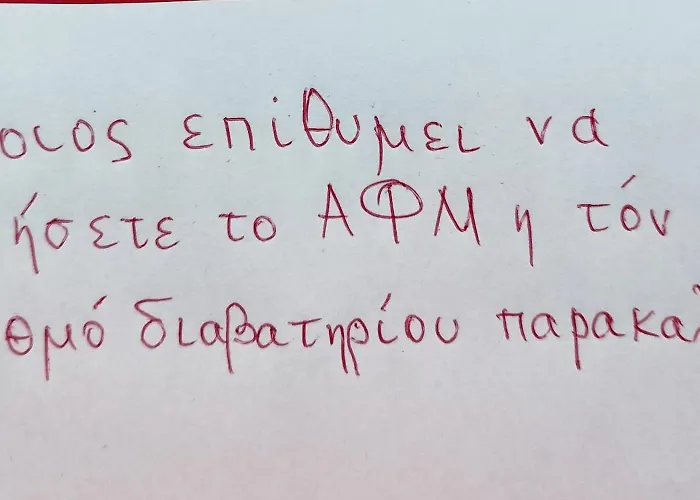 οιος επίθυμει να
ήσετε το ΑΦΜ η τόν
θμό διαβατηρίου παρακα